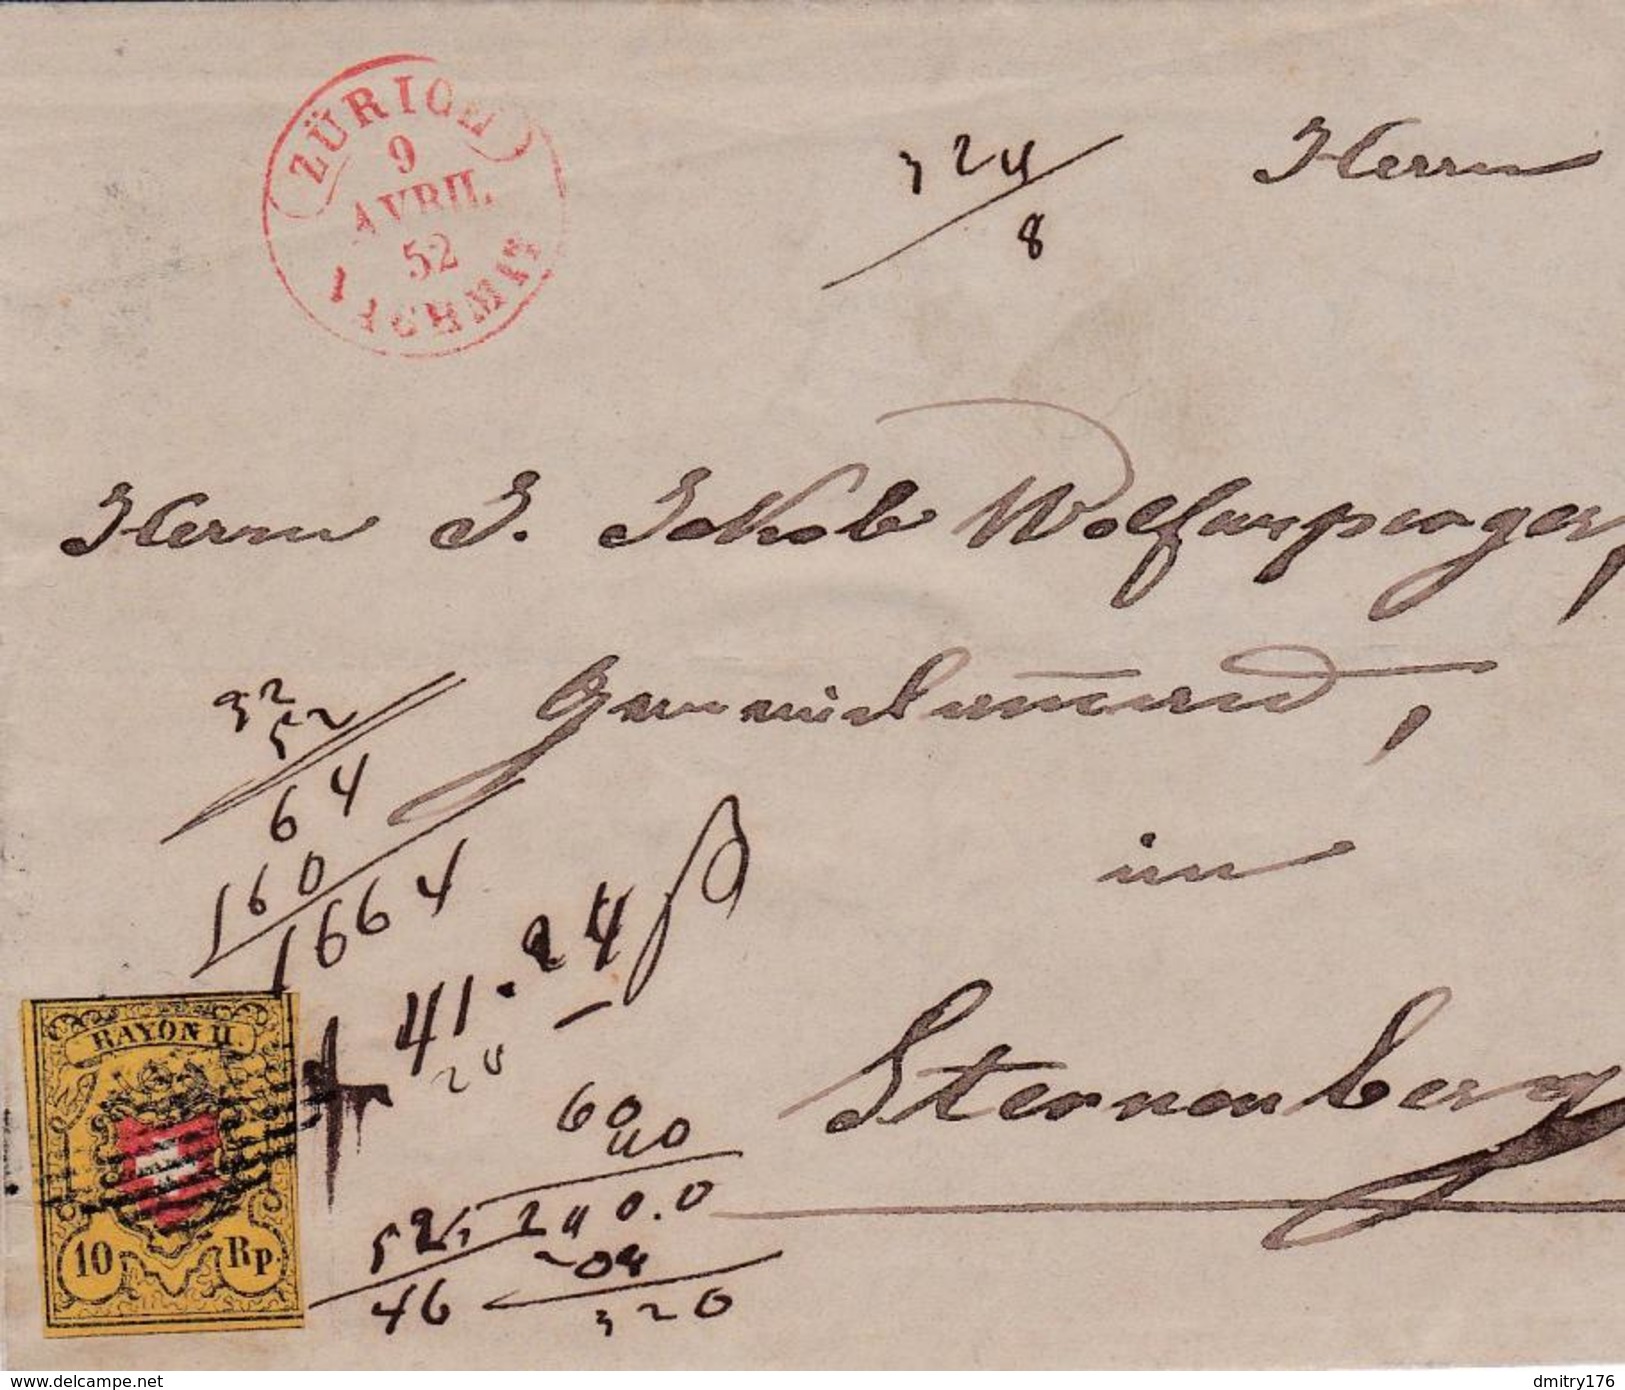 ZÜRICH
9
AVRIL
52
NACHMIT
324
8
Herrn
Herrn J. Jakob Wolfensperger,
Gemeindammann,
im
Sternenberg
32
52
64
160
1664
41. 24
24
60
40
52
240.0
208
46
320
RAYON II.
10 Rp.
delcampe.net
dmitry176